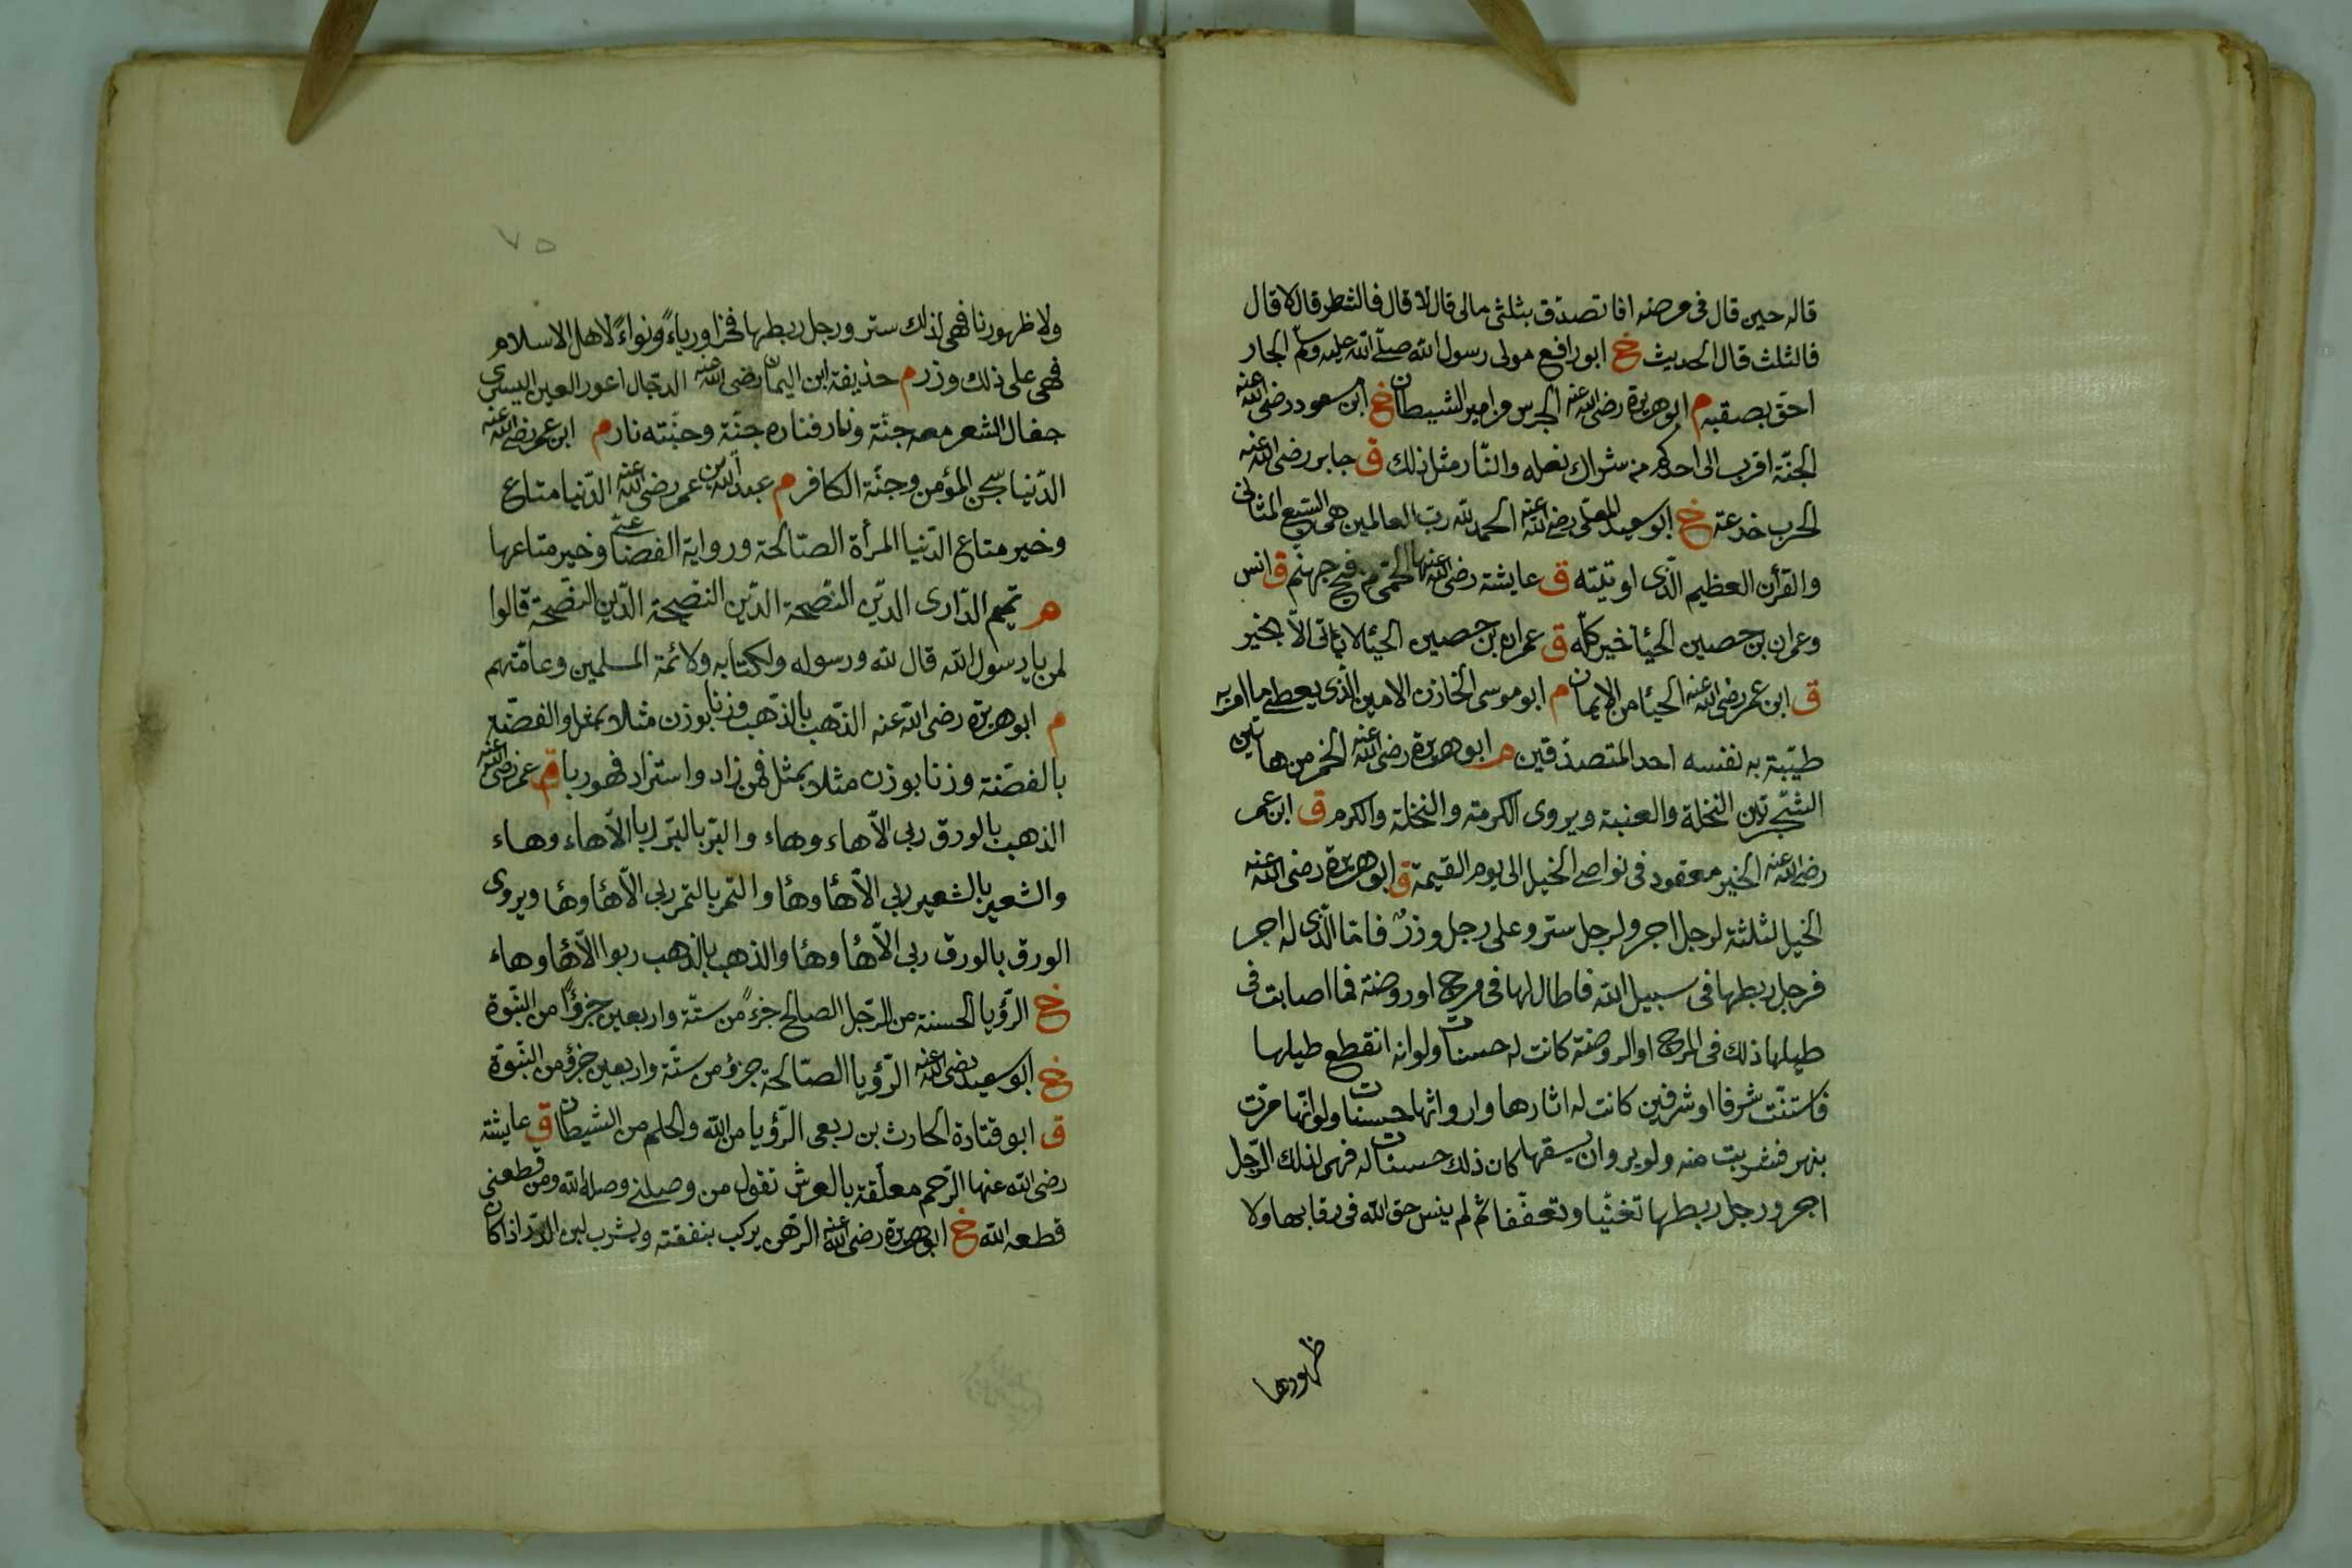 قاله حين قال فى مرضه افاتصدّق بثلثى مالى قال لا قال فالشطر قال لا قال
فالثلث قال الحديث خ ابورافع مولى رسول الله صلّى الله عليه وسلّم الجار
احقّ بصقبه م ابوهريرة رضى الله عنه الجرس مزامير الشيطان خ ابن مسعود رضى الله عنه
الجنّة اقرب الى احدكم من شراك نعله والنّار مثل ذلك ق جابر رضى الله عنه
الحرب خدعة خ ابوسعيد المعلى رضى الله عنه الحمد لله ربّ العالمين هى السّبع المثانى
والقرأن العظيم الّذى اوتيته ق عايشة رضى الله عنها الحمّى من فيح جهنّم ق انس
وعمران بن حصين الحئا خير كلّه ق عمران بن حصين الحئا لا ياتى الاّ بخير
ق ابن عمر رضى الله عنه الحئا من الايمان م ابوموسى الخازن الامين الّذى يعطى ما امر به
طيّبة به نفسه احد المتصدّقين م ابوهريرة رضى الله عنه الخمر من هاتين
الشّجرتين النخلة والعنبة ويروى الكرمة والنخلة والكرم ق ابن عمر
رضى الله عنه الخير معقود فى نواصى الخيل الى يوم القيمة ق ابوهريرة رضى الله عنه
الخيل لثلثة لرجل اجر ولرجل ستر وعلى رجل وزرٌ فامّا الّذى له اجر
فرجل ربطها فى سبيل الله فاطال لها فى مرج اوروضة فما اصابت فى
طيلها ذلك فى المرج اوالروضة كانت له حسنات ولوانه انقطع طيلها
فاستنّت شرفا اوشرفين كانت له اثارها وارواثها حسنات ولوانّها مرّت
بنهر فشربت منه ولويروان يسقيها كان ذلك حسنات له فهى لذلك الرّجل
اجر ورجل ربطها تغنّيا وتعفّفا ثم لم ينس حق الله فى رقابها ولا
ظهورها
٧٥
ولا ظهورنا فهى لذلك ستر ورجل ربطها فخرا ورياءً ونواءً لاهل الاسلام
فهى على ذلك وزر م حذيفة ابن اليمان رضى الله عنه الدجّال اعور العين اليسرى
جفال الشعر معه جنّة ونار فناره جنّة وجنّته نار م ابن عمر رضى الله عنه
الدّنيا سجن المؤمن وجنّة الكافر م عبد الله بن عمر رضى الله عنه الدّنيا متاع
وخير متاع الدّنيا المرأة الصّالحة ورواية القضاعى وخير متاعها
م تميم الدّارى الدّين النّصيحة الدّين النصيحة الدّين النّصيحة قالوا
لمن يا رسول الله قال لله ورسوله ولكتابه ولائمة المسلمين وعامّتهم
م ابوهريرة رضى الله عنه الذّهب بالذّهب وزنا بوزن مثلا بمثل والفضّة
بالفضّة وزنا بوزن مثلا بمثل فمن زاد واستزاد فهو ربا ق عمر رضى الله عنه
الذهب بالورق ربى الاّ هاء وهاء والبّر بالبّر ربا الاّ هاء وهاء
والشعير بالشعير ربى الاّ هٔا وهٔا والتّمر بالتمر ربى الاّ هٔا وهٔا ويروى
الورق بالورق ربى الاّ هٔا وهٔا والذهب بالذهب ربوا الاّ هٔا وهاء
خ الرّؤيا الحسنة من الرّجل الصالح جزءً من ستّة واربعين جزؤًا من النّبوّة
خ ابوسعيد رضى الله عنه الرّؤيا الصّالحة جزؤ من ستّة واربعين جزؤ من النّبوّة
ق ابوقتادة الحارث بن ربعى الرّؤيا من الله والحلم من الشيطان ق عايشة
رضى الله عنها الرّحم معلّقة بالعرش تقول من وصلنى وصله الله ومن قطعنى
قطعه الله خ ابوهريرة رضى الله عنه الرّهن يركب بنفقته ويشرب لبن الدّر اذا كان